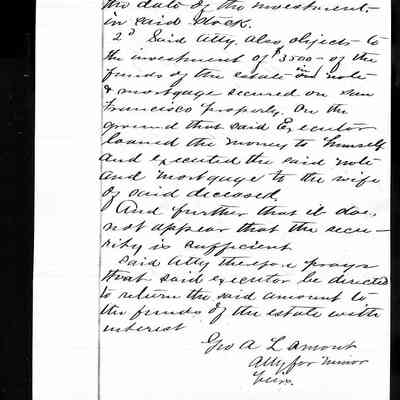 the date of the investment,
in said stock.
2d Said Atty. also objects to
the investment of $3500- of the
funds of the estate in note
& mortgage secured on San
Francisco property. On the
ground that said Executor
loaned the money to himself
and executed the said note
and mortgage to the wife
of said deceased.
And further that it does
not appear that the secu-
rity is sufficient
Said Atty therefore prays
that said executor be directed
to return the said amount to
the funds of the estate with
interest
Geo A Lamont
Atty for minor
heirs.